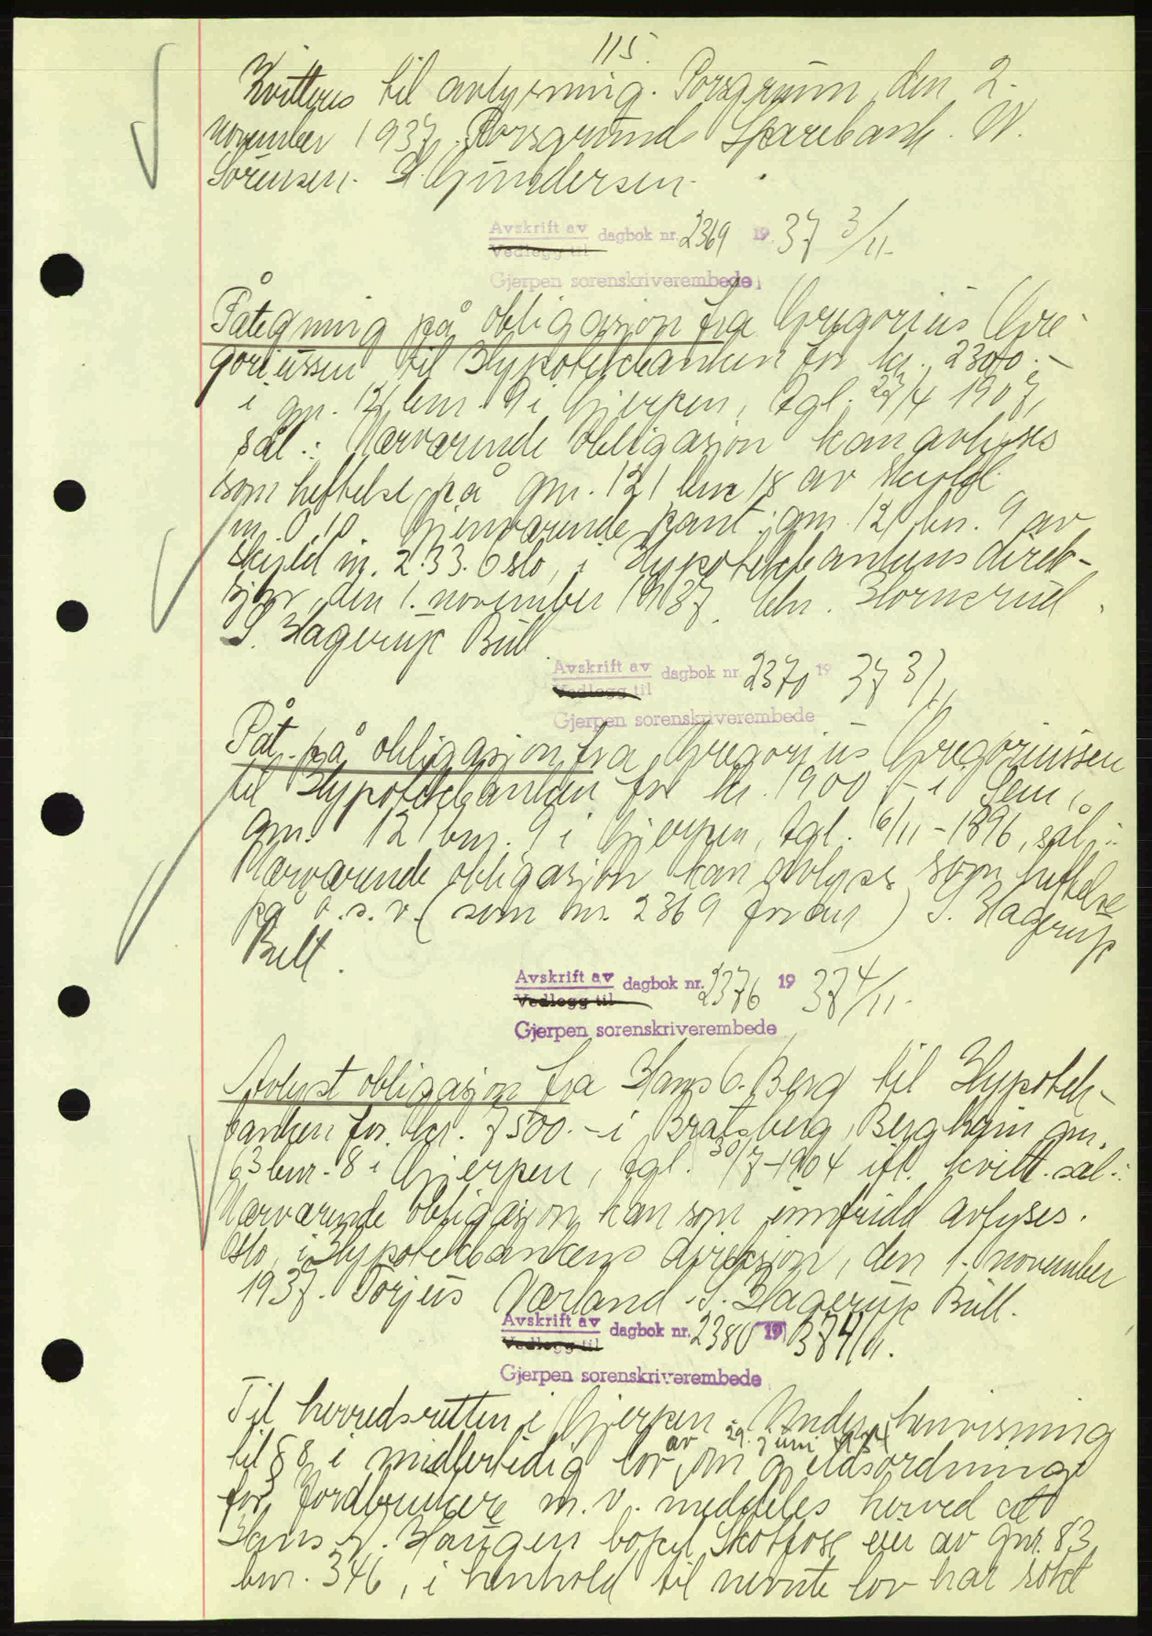 115.
Kvitteres til avlysning. Porsgrunn, den 2.
november 1937. Porsgrunds Sparebank. W.
Sørensen. Gundersen.
Avskrift av dagbok nr. 2369 1937 3/11.
Vedlegg til
Gjerpen sorenskriverembede
Påtegning på obligasjon fra Gregorius Gre-
goriussen til Hypotekbanken for kr. 2300.-
i gnr. 121 bnr. 9 i Gjerpen, tgl. 27/4 1907,
sål.: Nærværende obligasjon kan avlyses
som heftelse på gnr. 121 bnr 18 av skyld
m. 0.10. Gjenværende pant: gnr. 121 bn. 9 av
skyld m. 2.33. Oslo, i Hypotekbankens direk-
sjon, den 1. november 1937. Chr. Hornsrud.
S. Hagerup Bull.
Avskrift av dagbok nr. 2370 1937 3/11
Vedlegg til
Gjerpen sorenskriverembede
Påt. på obligasjon fra Gregorius Gregoriussen
til Hypotekbanken for kr. 1900.- i Sem,
gnr. 121 bnr. 9 i Gjerpen, tgl. 16/11-1896, sål.:
Nærværende obligasjon kan avlyses som heftelse
på o.s.v. (som nr. 2369 foran) S. Hagerup
Bull.
Avskrift av dagbok nr. 2376 1937 4/11.
Vedlegg til
Gjerpen sorenskriverembede
Avlyst obligasjon fra Hans C. Berg til Hypotek-
banken for kr. 7500.- i Bratsberg, Bergheim gnr.
63 bnr. 8 i Gjerpen, tgl. 30/7-1904 ifl. kvitt. sål.:
Nærværende obligasjon kan som innfridd avlyses.
Oslo, i Hypotekbankens direksjon, den 1. november
1937. Torjus Værland. S. Hagerup Bull.
Avskrift av dagbok nr. 2380 1937 4/11.
Vedlegg til
Gjerpen sorenskriverembede
Til herredsretten i Gjerpen. Under henvisning
til § 8 i midlertidig lov av 29. juni 1934 om gjeldsordning
for jordbrukere m.v. meddeles herved at
Hans Haugen bopel Skotfoss eier av gnr. 83
bnr. 346, i henhold til nevnte lov har søkt